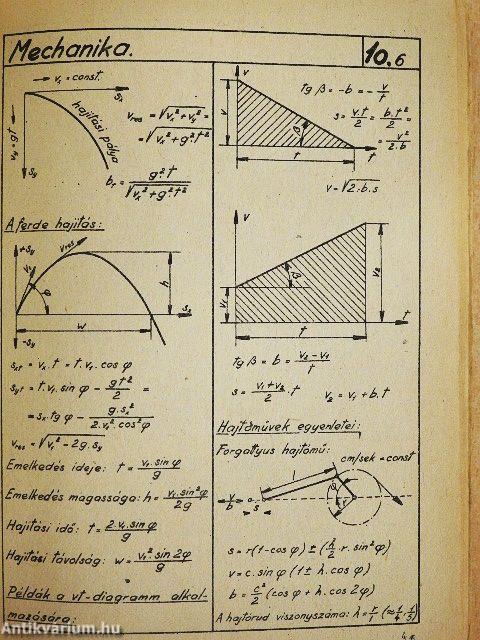 Mechanika.
10.6
→ v₁ = const.
sₓ
hajítási pálya
v_y = gt
s_y
v_res = √(vₓ² + v_y²) =
= √(vₓ² + g².t²)
b_t = g².t / √(vₓ² + g².t²)
A ferde hajítás:
+s_y
v_res
v₁
φ
h
sₓ
w
-s_y
s_xt = vₓ.t = t.v₁.cos φ
s_yt = t.v₁.sin φ - gt²/2 =
= sₓ.tg φ - g.sₓ² / 2.v₁².cos²φ
v_res = √(v₁² - 2g.s_y)
Emelkedés ideje: t = v₁.sin φ / g
Emelkedés magassága: h = v₁².sin²φ / 2g
Hajítási idő: t = 2.v₁.sin φ / g
Hajítási távolság: w = v₁².sin 2φ / g
Példák a vt-diagramm alkal-
mazására:
v
v
β
t
t
tg β = -b = - v/t
s = v.t/2 = b.t²/2 =
= v²/2.b
v = √(2.b.s)
v
v₁
β
v₂
t
t
tg β = b = (v₂ - v₁)/t
s = (v₁ + v₂)/2 .t
v₂ = v₁ + b.t
Hajtóművek egyenletei:
Forgattyus hajtómű:
cm/sek = const
l
φ
r
v
b
s
s = r(1 - cos φ) ± (λ/2 .r.sin²φ)
v = c.sin φ (1 ± λ.cos φ)
b = c²/r (cos φ + λ.cos 2φ)
A hajtórud viszonyszáma: λ = r/l (≈ 1/4 . 1/5)
Antikvarium.hu